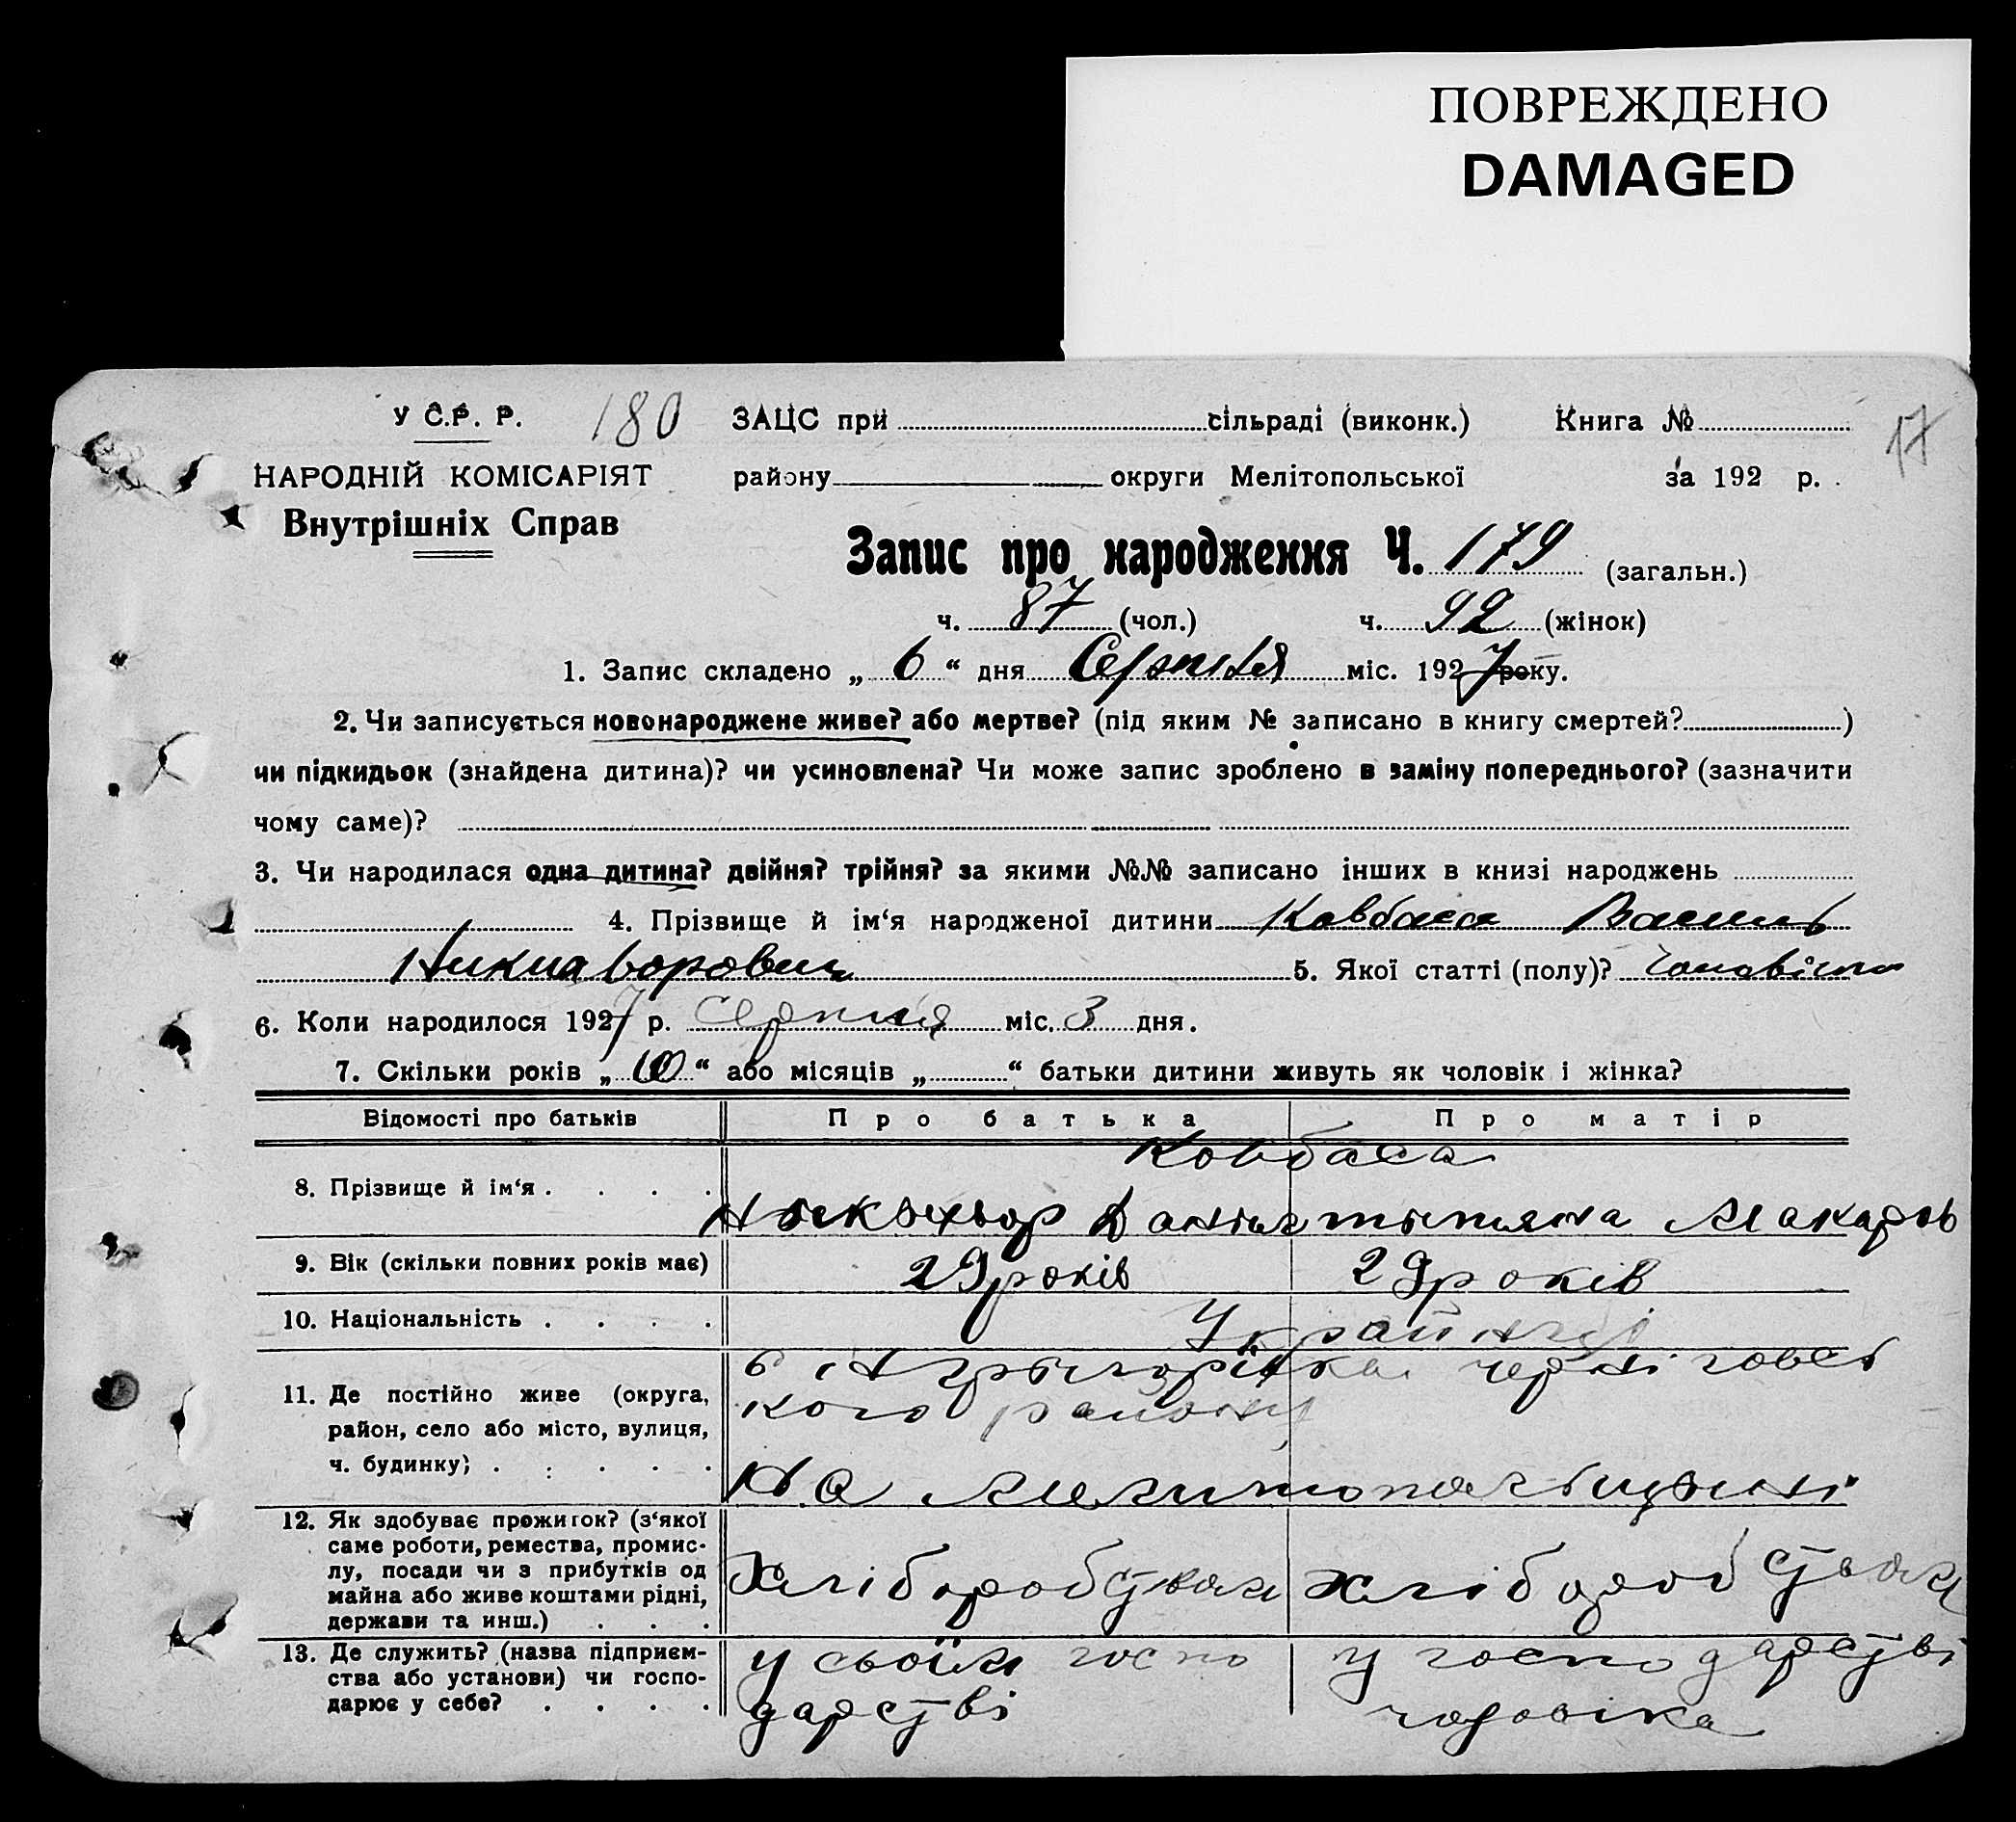 ПОВРЕЖДЕНО
DAMAGED
У С.Р. Р. 180 ЗАЦС при сільраді (виконк.) Книга № 17
НАРОДНІЙ КОМІСАРІЯТ району округи Мелітопольської за 192 р.
Внутрішніх Справ
Запис про народження Ч. 179 (загальн.)
ч. 87 (чол.) ч. 92 (жінок)
1. Запис складено „ 6 “ дня Серпня міс. 1927 року.
2. Чи записується новонароджене живе? або мертве? (під яким № записано в книгу смертей? )
чи підкидьок (знайдена дитина)? чи усиновлена? Чи може запис зроблено в заміну попереднього? (зазначити
чому саме)?
3. Чи народилася одна дитина? двійня? трійня? за якими №№ записано інших в книзі народжень
4. Прізвище й ім‘я народженої дитини Ковбаса Василь
5. Якої статті (полу)?
6. Коли народилося 1927 р. Серпня міс. 3 дня.
7. Скільки років „ 10 “ або місяців „ “ батьки дитини живуть як чоловік і жінка?
Відомості про батьків Про батька Про матір
Ковбаса
8. Прізвище й ім‘я . . . . Даніил тытяна Макаров
9. Вік (скільки повних років має) 29 років 29 років
10. Національність . . . . Україньці
с Ныгрыгорівка черніговсь
11. Де постійно живе (округа, кого району
район, село або місто, вулиця,
ч. будинку) . . . . . На мелитопольщині
12. Як здобуває прожиток? (з‘якої
саме роботи, ремества, промис-
лу, посади чи з прибутків од хліборобством хліборобством
майна або живе коштами рідні,
держави та инш.) . . .
13. Де служить? (назва підприєм- у своїм госпо у господарстві
ства або установи) чи госпо-
дарює у себе? . . . . дарстві чоловіка